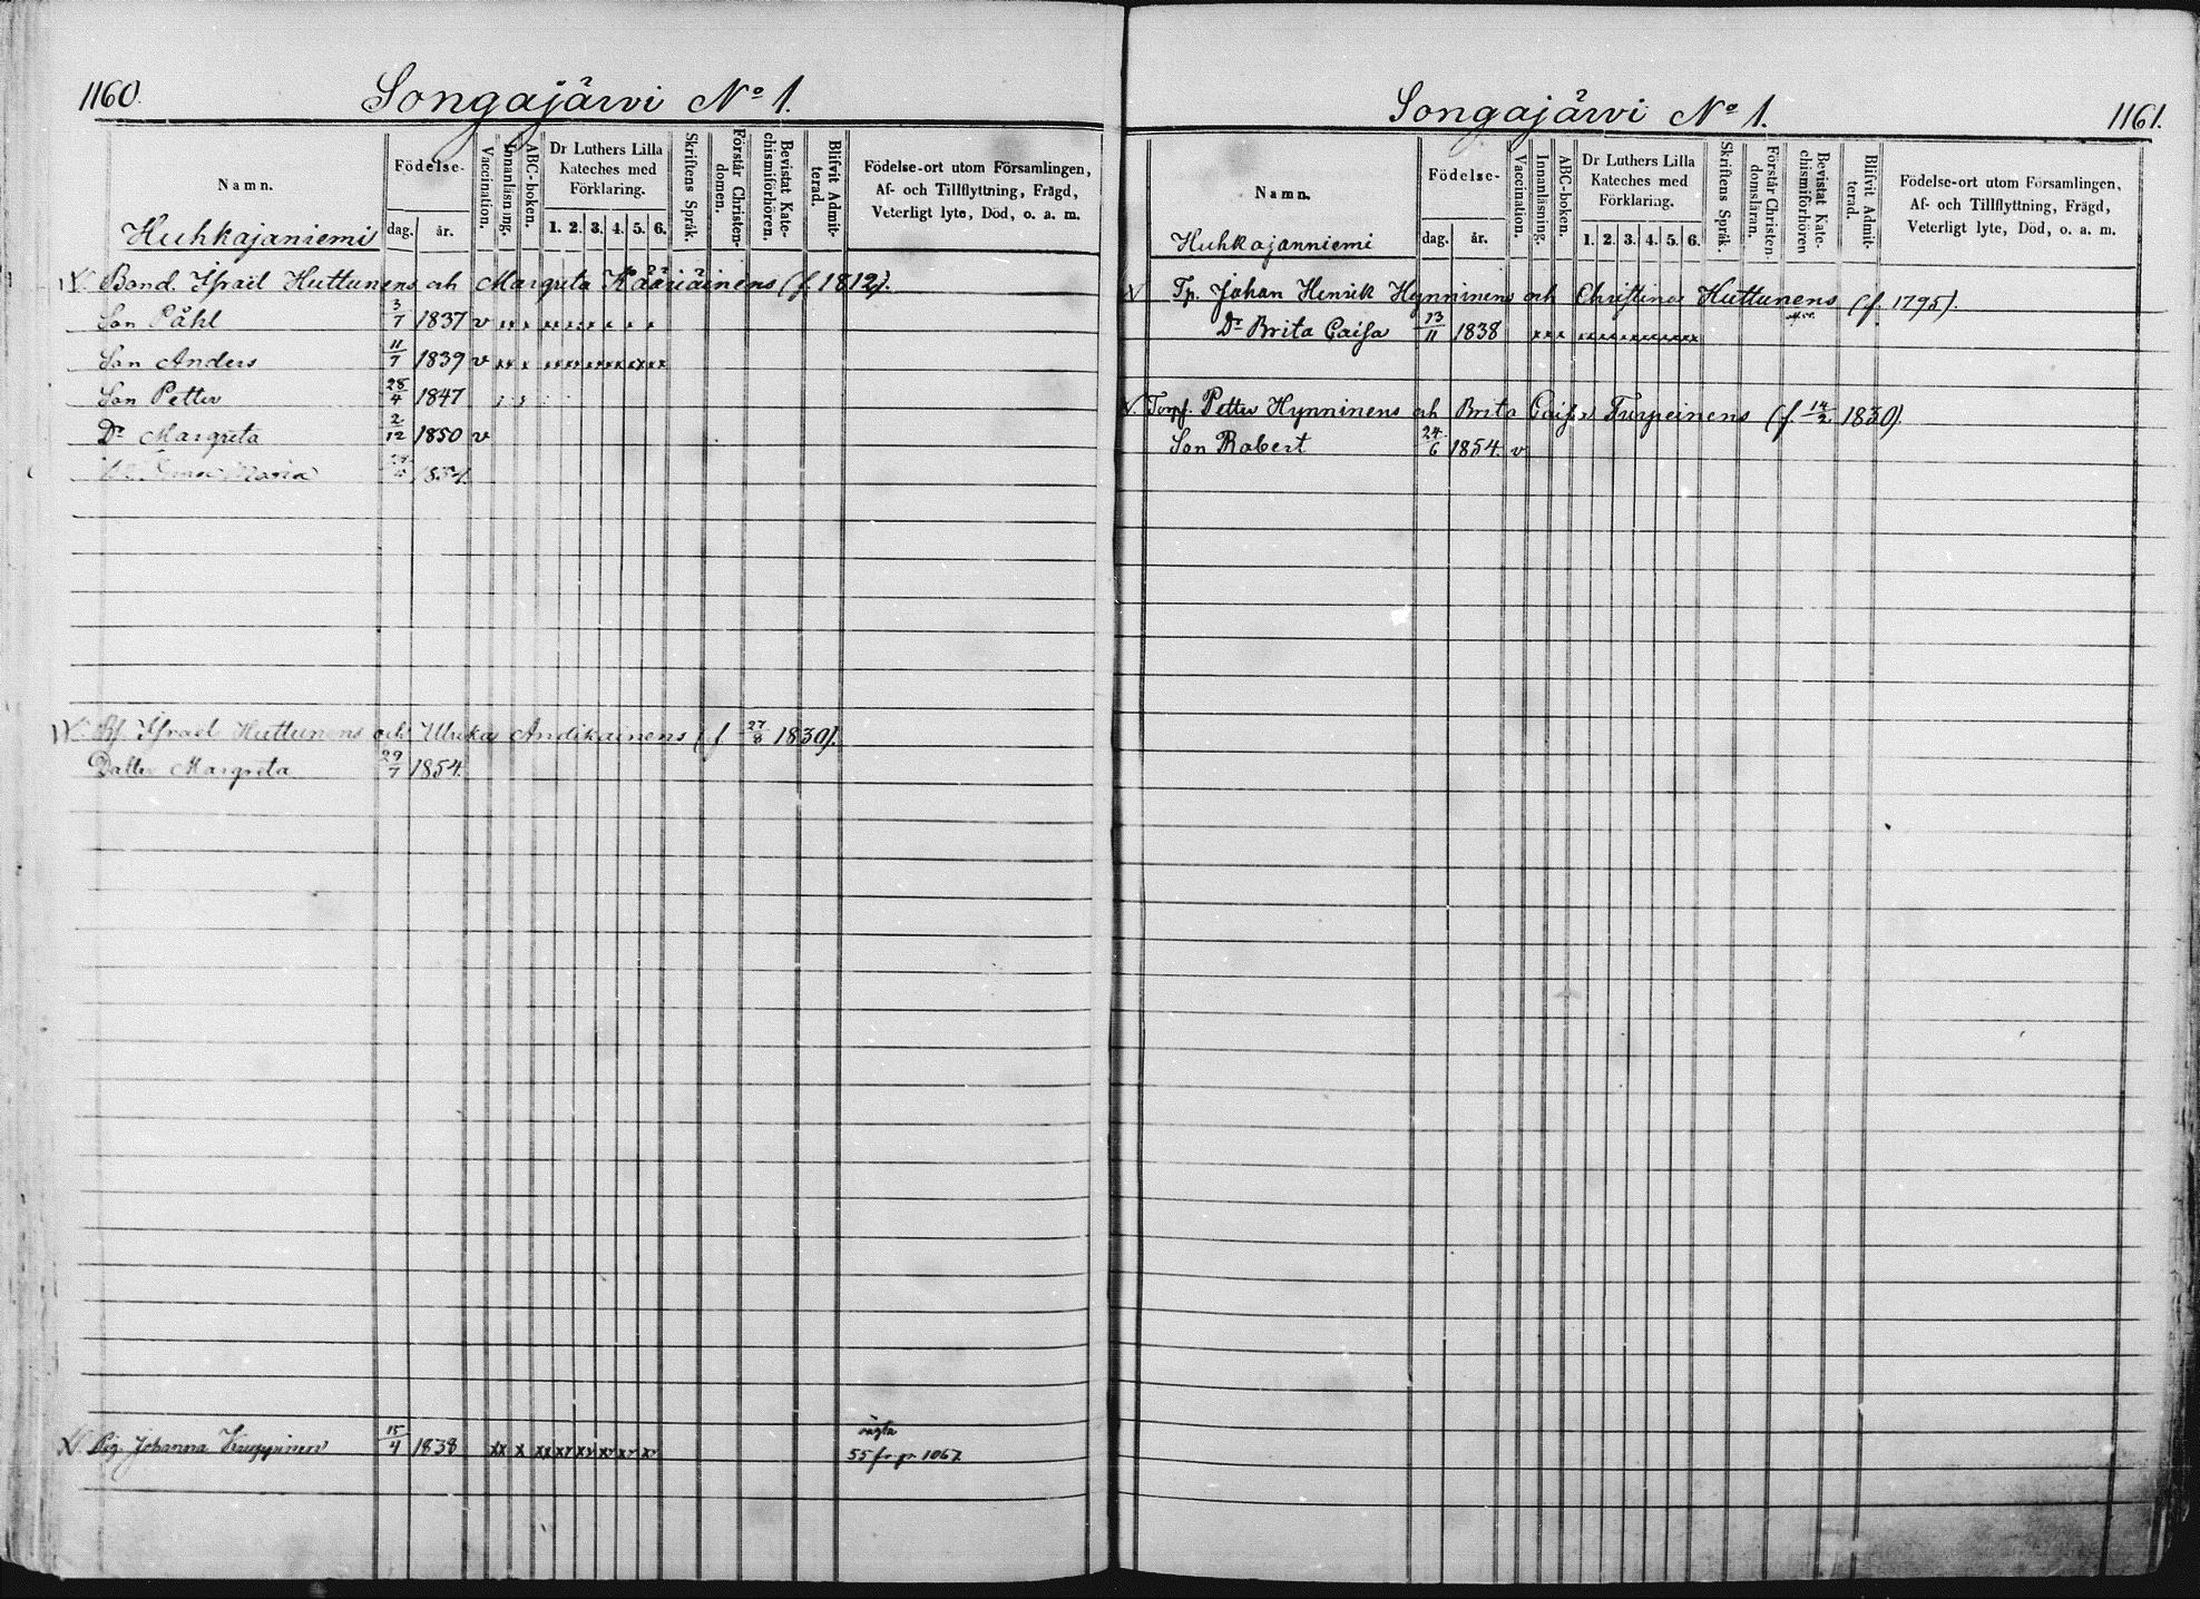 1160.
Songajärvi No 1.
Namn.
Födelse-
dag.
år.
Vaccination.
Innanläsning.
ABC-boken.
Dr Luthers Lilla
Kateches med
Förklaring.
1. 2. 3. 4. 5. 6.
Skriftens Språk.
Förstår Christen-
domen.
Bevistat Kate-
chismiförhören.
Blifvit Admit-
terad.
Födelse-ort utom Församlingen,
Af- och Tillflyttning, Frägd,
Veterligt lyte, Död, o. a. m.
Huhkajaniemi
Bond. Israel Huttunens och Margreta Kääriäinens (f. 1812).
Son Påhl 3/7 1837 v
Son Anders 11/7 1839 v
Son Petter 28/4 1847
Dr Margreta 2/12 1850 v
Maria
Israel Huttunens och Ulrika Andikainens (f 27/8 1830).
Dotter Margreta 29/7 1854.
Pig. Johanna 15/4 1838 xx x
55 fr. p. 1067.
Songajärvi No 1.
1161.
Namn.
Födelse-
dag.
år.
Vaccination.
Innanläsning.
ABC-boken.
Dr Luthers Lilla
Kateches med
Förklaring.
1. 2. 3. 4. 5. 6.
Skriftens Språk.
Förstår Christen-
domsläran.
Bevistat Kate-
chismiförhören
Blifvit Admit-
terad.
Födelse-ort utom Församlingen,
Af- och Tillflyttning, Frägd,
Veterligt lyte, Död, o. a. m.
Huhkajanniemi
Tp. Johan Henrik Hynninens och Christina Huttunens (f. 1795).
Dr Brita Caisa 13/11 1838
Torp. Petter Hynninens och Brita Caisa Turpeinens (f. 14/2 1830).
Son Robert 24/6 1854. v